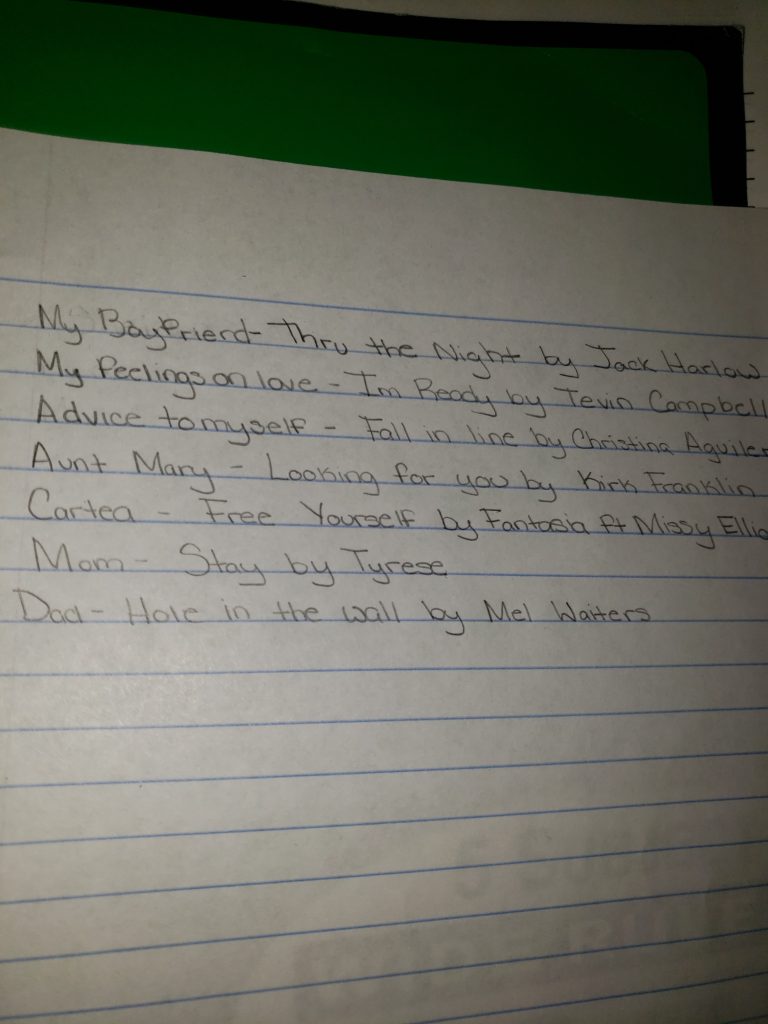 My Boyfriend- Thru the Night by Jack Harlow
My feelings on love - Im Ready by Tevin Campbell
Advice to myself - Fall in line by Christina Aguiler
Aunt Mary - Looking for you by Kirk Franklin
Cartea - Free Yourself by Fantasia ft Missy Ellio
Mom- Stay by Tyrese
Dad- Hole in the wall by Mel Waiters